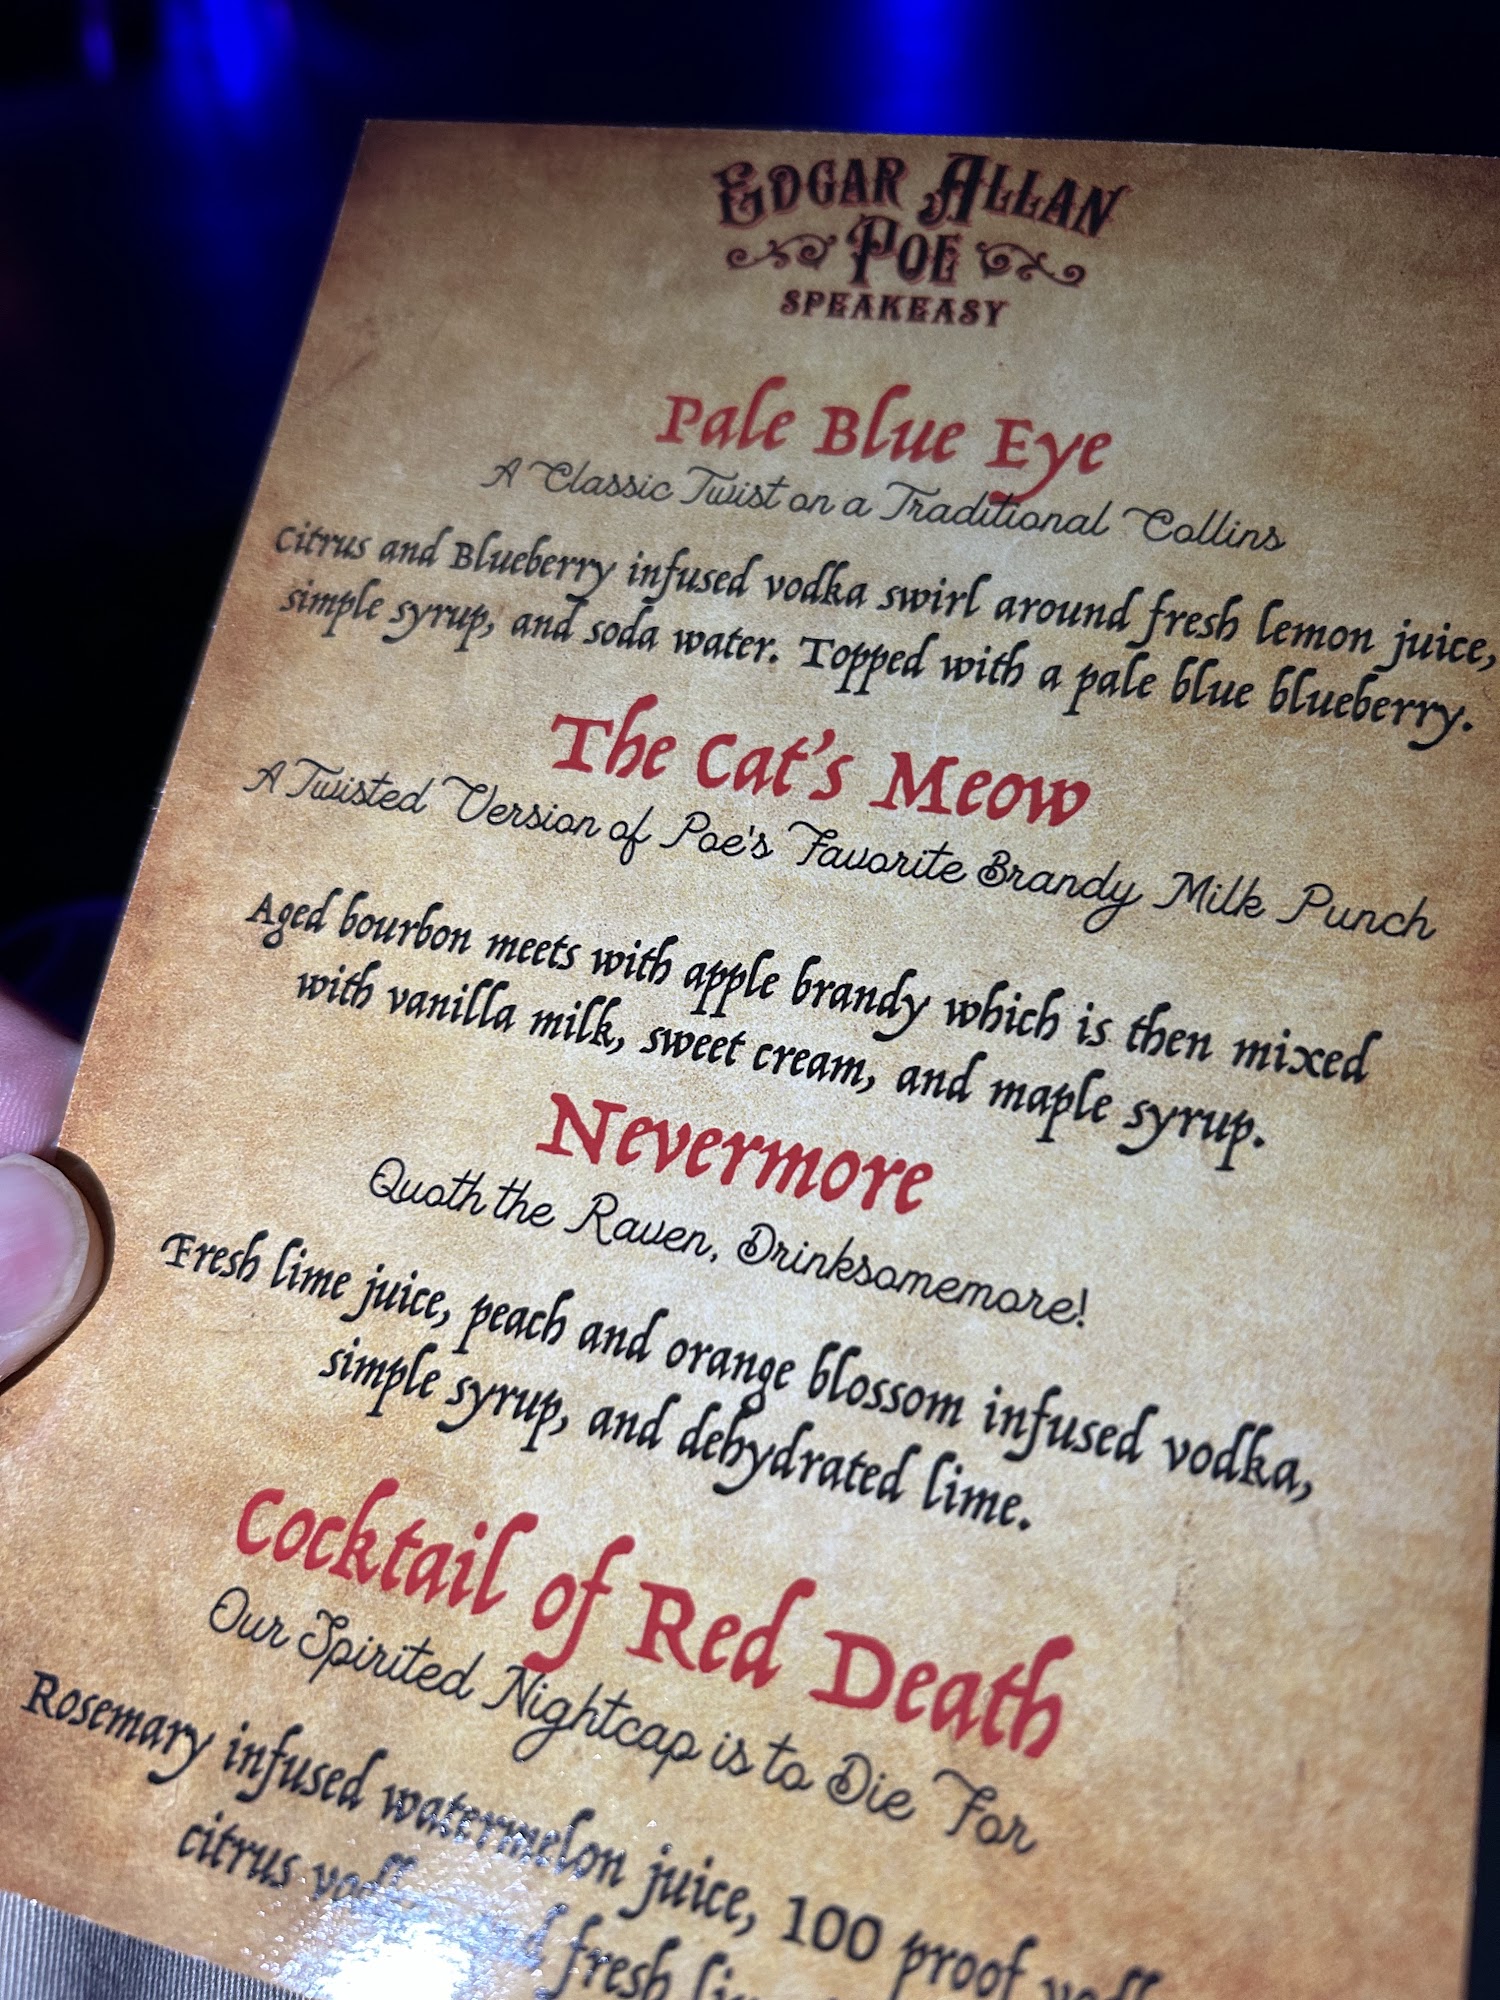 EDGAR ALLAN
POE
SPEAKEASY
Pale Blue Eye
A Classic Twist on a Traditional Collins
Citrus and Blueberry infused vodka swirl around fresh lemon juice,
simple syrup, and soda water. Topped with a pale blue blueberry.
The Cat's Meow
A Twisted Version of Poe's Favorite Brandy Milk Punch
Aged bourbon meets with apple brandy which is then mixed
with vanilla milk, sweet cream, and maple syrup.
Nevermore
Quoth the Raven, Drinksomemore!
Fresh lime juice, peach and orange blossom infused vodka,
simple syrup, and dehydrated lime.
Cocktail of Red Death
Our Spirited Nightcap is to Die For
Rosemary infused watermelon juice, 100 proof
citrus fresh